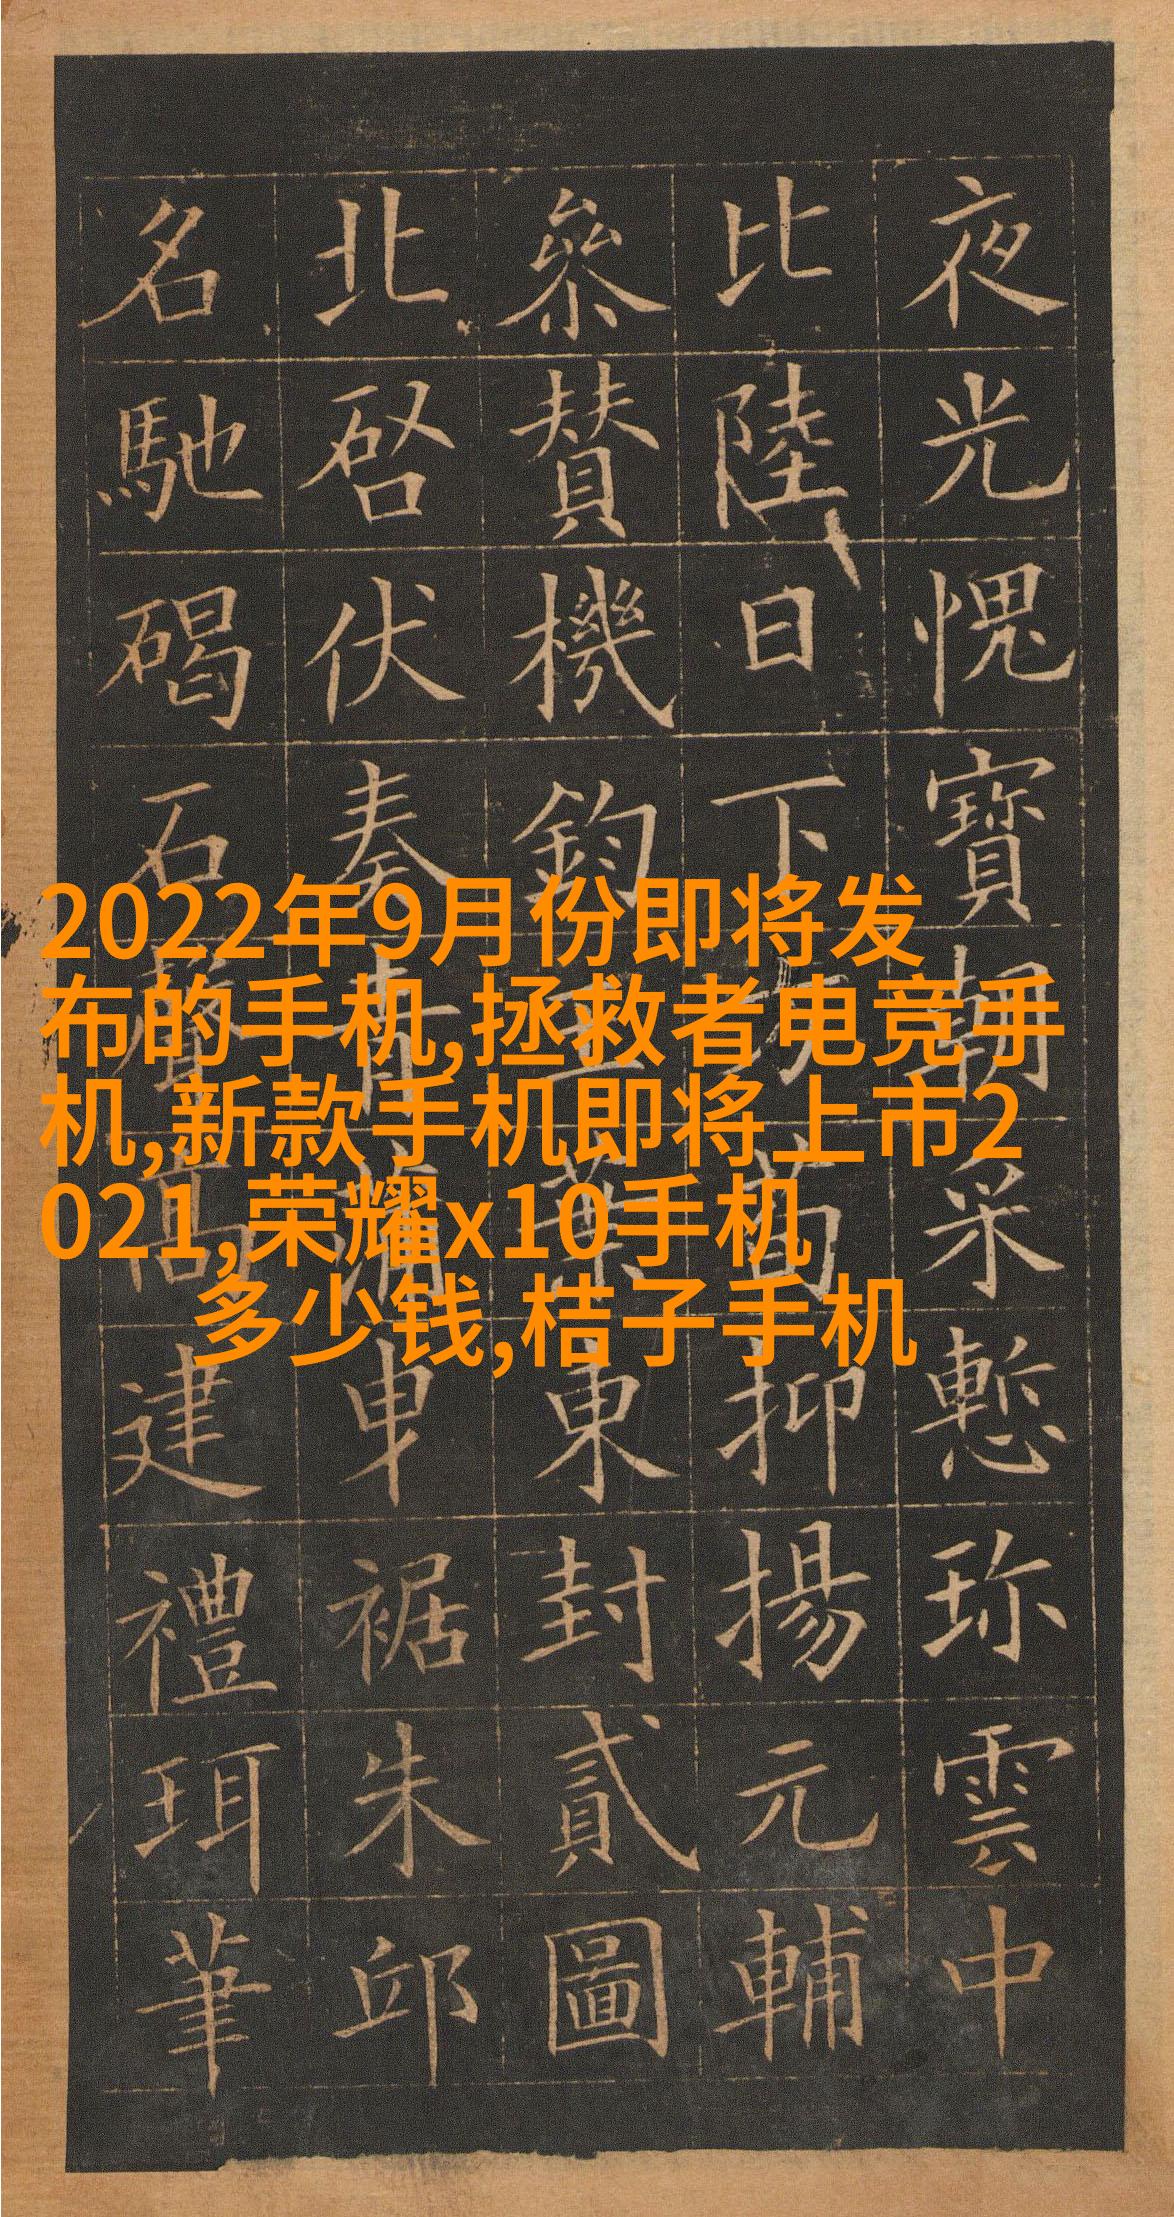 夜光愧寶朝采慙珎雲中
比陸日下抑揚元輔
參賛機鈞王華東封貳圖
北啓伏奏青蒲申裾朱邱
名馳碣石聲高建禮珥筆
2022年9月份即将发
布的手机,拯救者电竞手
机,新款手机即将上市2
021,荣耀x10手机
多少钱,桔子手机